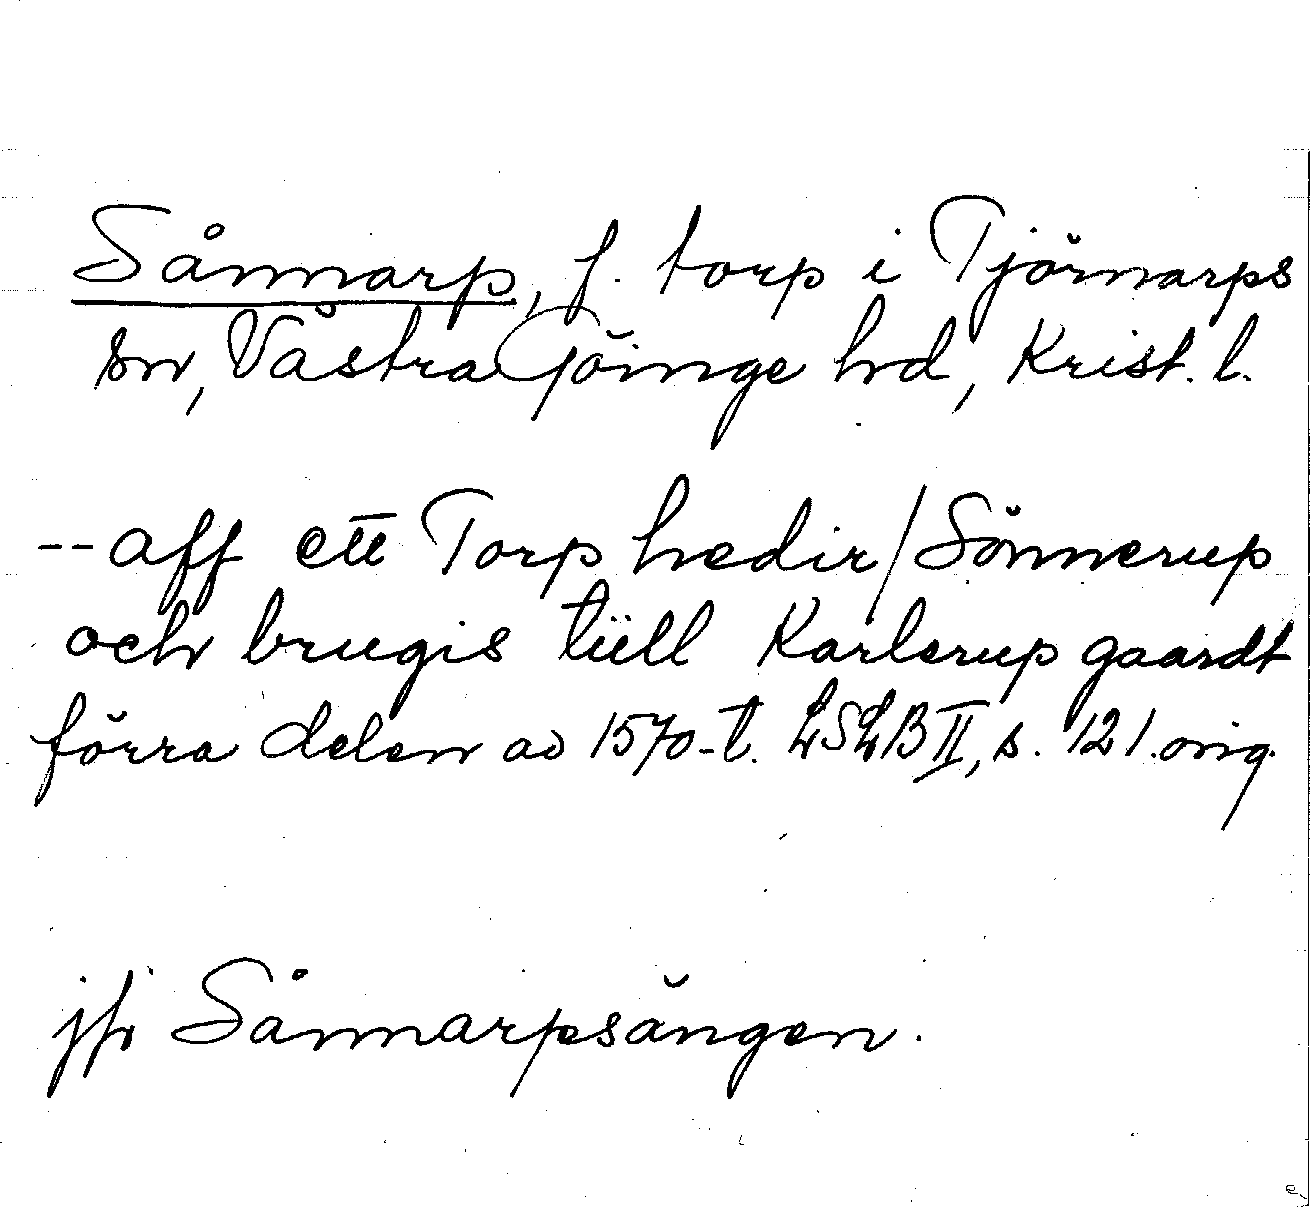 Sånnarp, f. torp i Tjörnarps
sn, Västra Göinge hd, Krist. l.
-- aff ett Torp hedir / Sönnerup
och brugis tiill Karlerup gaardt
förra delen av 1570-t. LSLB II, s. 121. orig.
jfr Sånnarpsängen.